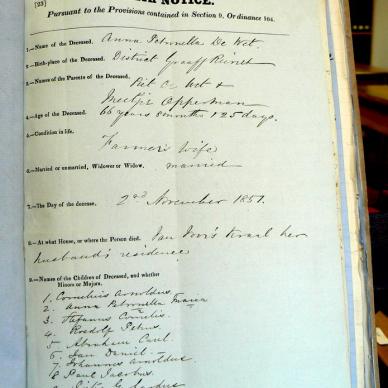 [23]
NOTICE.
Pursuant to the Provisions contained in Section 9, Ordinance 104.
1.—Name of the Deceased. Anna Petronella De Wet.
2.—Birth-place of the Deceased. District Graaff Reinet
3.—Names of the Parents of the Deceased. Piet De Wet &
Opperman
4.—Age of the Deceased. 66 years 8 months & 25 days.
5.—Condition in life.
Farmer's Wife
6.—Married or unmarried, Widower or Widow. married
7.—The Day of the decease, 2nd November 1851.
8.—At what House, or where the Person died. Kraal her
husband's residence
9.—Names of the Children of Deceased, and whether
Minors or Majors.
1. Cornelius Arnoldus
2. Anna Petronella Maria
3. Stefanus Cornelis.
4. Roedolf
5. Abraham Carel.
6. Jan Daniel.
7. Johannes Arnoldus
8. Paul Jacobus